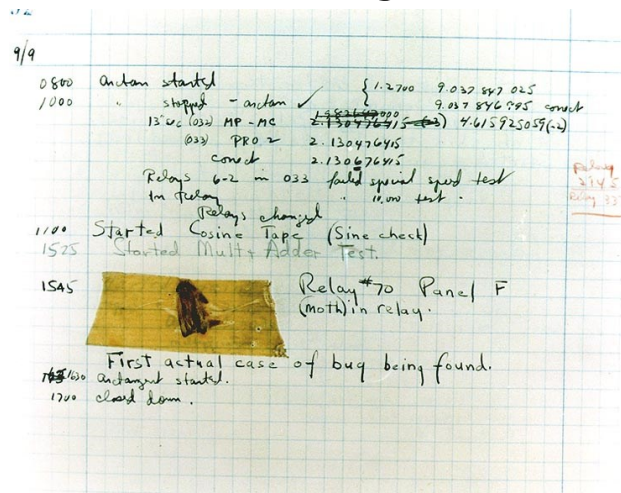 9/9
0800 antan started { 1.2700 9.037 847 025
1000 " stopped - antan ✓ 9.037 846 995 conect
13"uc (033) MP - MC 2.130476415 4.615925059(-2)
(033) PRO 2 2.130476415
conect 2.130676415
Relays 6-2 in 033 failed special speed test
In Relay " 11.000 test.
Relays changed
1100 Started Cosine Tape (Sine check)
1525 Started Mult + Adder Test.
1545 Relay #70 Panel F
(moth) in relay.
First actual case of bug being found.
1630 antangent started.
1700 closed down.
Relay
2145
Relay 33